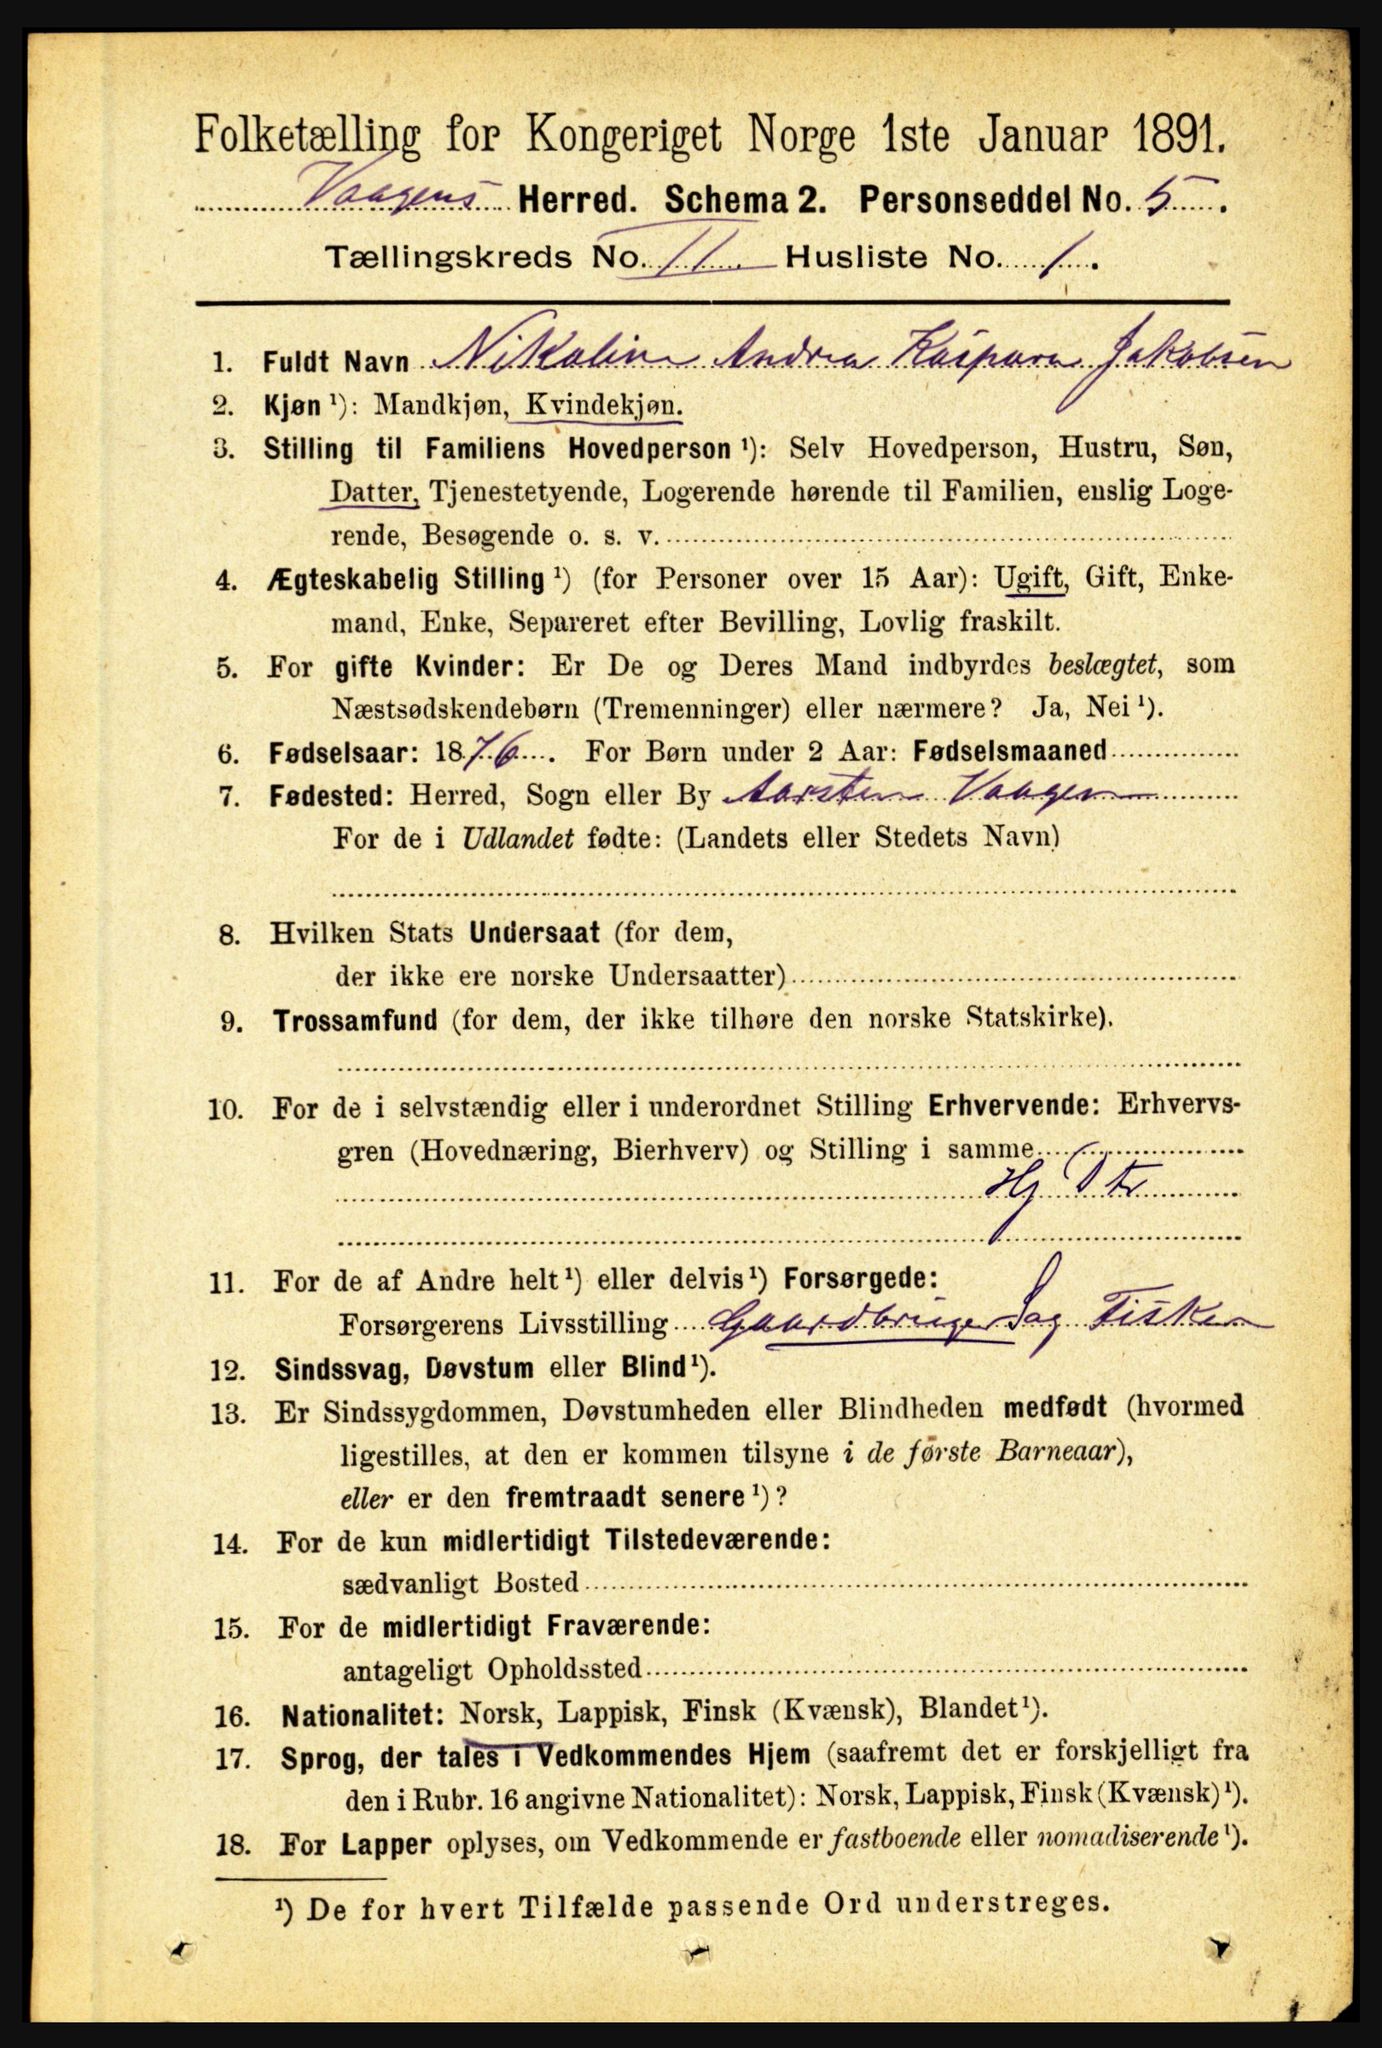 Folketælling for Kongeriget Norge 1ste Januar 1891.
Vaagens Herred. Schema 2. Personseddel No. 5.
Tællingskreds No. II Husliste No. 1.
1. Fuldt Navn Nikoline Andrea Kaspara Jakobsen
2. Kjøn ¹): Mandkjøn, Kvindekjøn.
3. Stilling til Familiens Hovedperson ¹): Selv Hovedperson, Hustru, Søn,
Datter, Tjenestetyende, Logerende hørende til Familien, enslig Loge-
rende, Besøgende o. s. v.
4. Ægteskabelig Stilling ¹) (for Personer over 15 Aar): Ugift, Gift, Enke-
mand, Enke, Separeret efter Bevilling, Lovlig fraskilt.
5. For gifte Kvinder: Er De og Deres Mand indbyrdes beslægtet, som
Næstsødskendebørn (Tremenninger) eller nærmere? Ja, Nei ¹).
6. Fødselsaar: 1876. For Børn under 2 Aar: Fødselsmaaned
7. Fødested: Herred, Sogn eller By Aarsten Vaagen
For de i Udlandet fødte: (Landets eller Stedets Navn)
8. Hvilken Stats Undersaat (for dem,
der ikke ere norske Undersaatter)
9. Trossamfund (for dem, der ikke tilhøre den norske Statskirke).
10. For de i selvstændig eller i underordnet Stilling Erhvervende: Erhvervs-
gren (Hovednæring, Bierhverv) og Stilling i samme
Hj
11. For de af Andre helt ¹) eller delvis ¹) Forsørgede:
Forsørgerens Livsstilling Gaardbruger og Fisker
12. Sindssvag, Døvstum eller Blind ¹).
13. Er Sindssygdommen, Døvstumheden eller Blindheden medfødt (hvormed
ligestilles, at den er kommen tilsyne i de første Barneaar),
eller er den fremtraadt senere ¹)?
14. For de kun midlertidigt Tilstedeværende:
sædvanligt Bosted
15. For de midlertidigt Fraværende:
antageligt Opholdssted
16. Nationalitet: Norsk, Lappisk, Finsk (Kvænsk), Blandet ¹).
17. Sprog, der tales i Vedkommendes Hjem (saafremt det er forskjelligt fra
den i Rubr. 16 angivne Nationalitet): Norsk, Lappisk, Finsk (Kvænsk) ¹).
18. For Lapper oplyses, om Vedkommende er fastboende eller nomadiserende ¹).
¹) De for hvert Tilfælde passende Ord understreges.